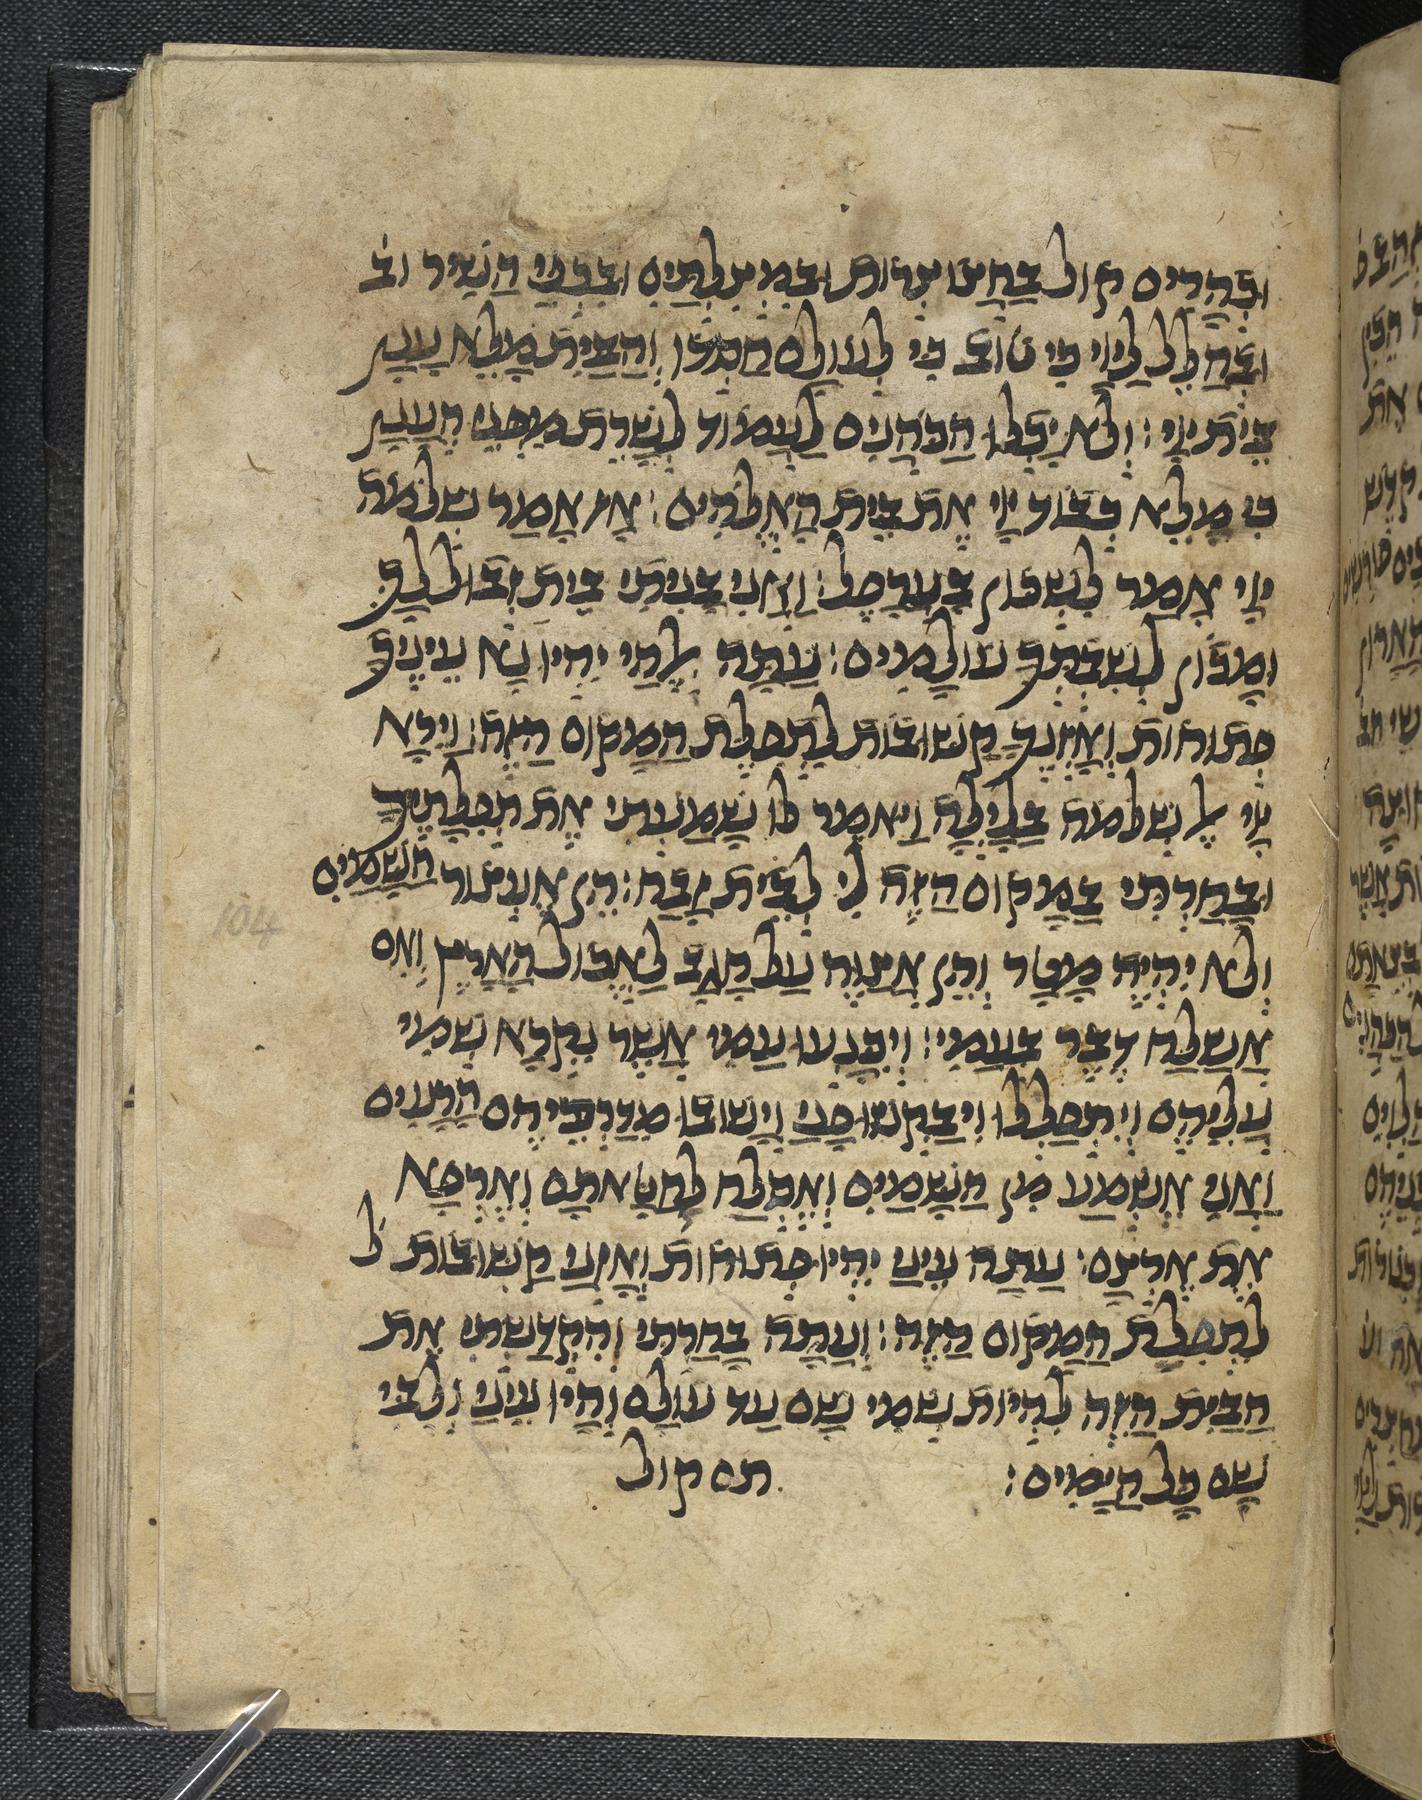 וּכְהָרִים קול בַּחֲצוֹצְרוֹת וּבִמְצִלְתַּיִם וּבִכְלֵי הַשִּׁיר וּבְ
וּבְהַלֵּל לַייָ כִּי טוֹב כִּי לְעוֹלָם חַסְדּוֹ וְהַבַּיִת מָלֵא עָנָן
בֵּית יְיָ׃ וְלֹא יָכְלוּ הַכֹּהֲנִים לַעֲמוֹד לְשָׁרֵת מִפְּנֵי הֶעָנָן
כִּי מָלֵא כְבוֹד יְיָ אֶת בֵּית הָאֱלֹהִים׃ אָז אָמַר שְׁלֹמֹה
יְיָ אָמַר לִשְׁכּוֹן בָּעֲרָפֶל׃ וַאֲנִי בָּנִיתִי בֵית זְבוּל לָךְ
וּמָכוֹן לְשִׁבְתְּךָ עוֹלָמִים׃ עַתָּה אֱלֹהַי יִהְיוּ נָא עֵינֶיךָ
פְּתוּחוֹת וְאָזְנֶךָ קַשּׁוּבוֹת לִתְפִלַּת הַמָּקוֹם הַזֶּה׃ וַיֵּרָא
יְיָ אֶל שְׁלֹמֹה בַּלַּיְלָה וַיֹּאמֶר לוֹ שָׁמַעְתִּי אֶת תְּפִלָּתֶיךָ
וּבָחַרְתִּי בַּמָּקוֹם הַזֶּה לִי לְבֵית זָבַח׃ הֵן אֶעֱצוֹר הַשָּׁמַיִם
וְלֹא יִהְיֶה מָטָר וְהֵן אֲצַוֶּה עַל חָגָב לֶאֱכוֹל הָאָרֶץ וְאִם
אֲשַׁלַּח דֶּבֶר בְּעַמִּי׃ וְיִכָּנְעוּ עַמִּי אֲשֶׁר נִקְרָא שְׁמִי
עֲלֵיהֶם וְיִתְפַּלְלוּ וִיבַקְשׁוּ פָנַי וְיָשׁוּבוּ מִדַּרְכֵּיהֶם הָרָעִים
וַאֲנִי אֶשְׁמַע מִן הַשָּׁמַיִם וְאֶסְלַח לְחַטָּאתָם וְאֶרְפָּא
אֶת אַרְצָם׃ עַתָּה עֵינַי יִהְיוּ פְתוּחוֹת וְאָזְנַי קַשּׁוּבוֹת לִ
לִתְפִלַּת הַמָּקוֹם הַזֶּה׃ וְעַתָּה בָּחַרְתִּי וְהִקְדַּשְׁתִּי אֶת
הַבַּיִת הַזֶּה לִהְיוֹת שְׁמִי שָׁם עַד עוֹלָם וְהָיוּ עֵינַי וְלִבִּי
שָׁם כָּל הַיָּמִים׃ תם קול
104